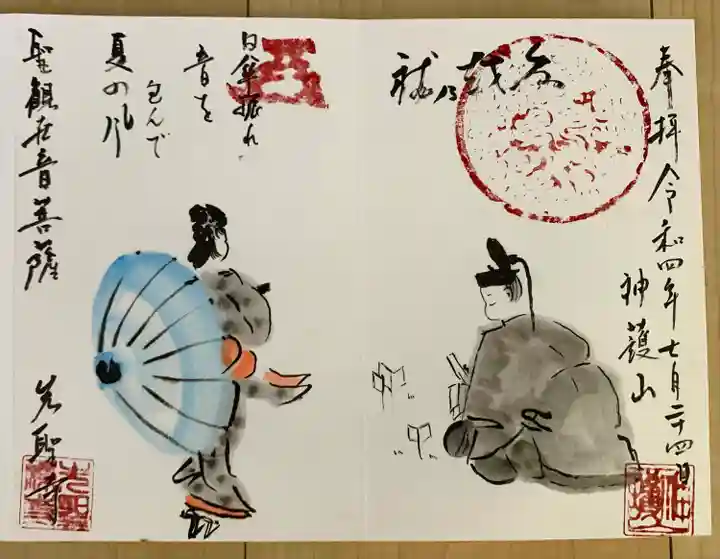 奉拝 令和四年七月二十四日
神護山
日傘揺れ
音を
包んで
夏の風
聖観世音菩薩
先聖寺